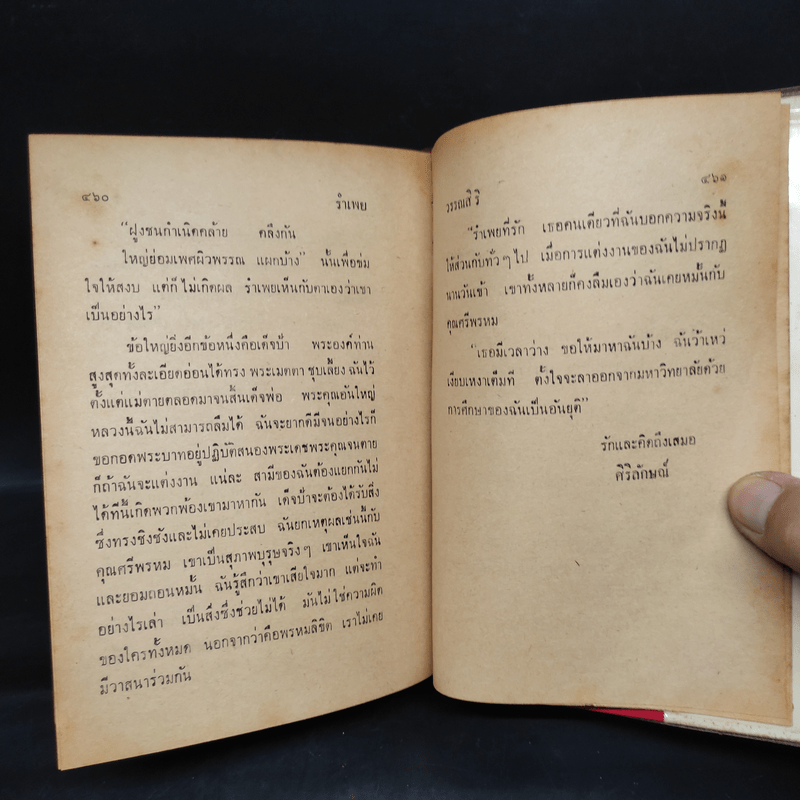 ๔๖๐ รำเพย
"ฝูงชนกำเนิดคล้าย คลึงกัน
ใหญ่ย่อมเพศผิวพรรณ แผกบ้าง" นั้นเพื่อข่ม
ใจให้สงบ แต่ก็ไม่เกิดผล รำเพยเห็นกับตาเองว่าเขา
เป็นอย่างไร"
ข้อใหญ่ยิ่งอีกข้อหนึ่งคือเด็จป้า พระองค์ท่าน
สูงสุดทั้งละเอียดอ่อนได้ทรง พระเมตตา ชุบเลี้ยง ฉันไว้
ตั้งแต่แม่ตายตลอดมาจนสิ้นเด็จพ่อ พระคุณอันใหญ่
หลวงนี้ฉันไม่สามารถลืมได้ ฉันจะยากดีมีจนอย่างไรก็
ขอกอดพระบาทอยู่ปฏิบัติสนองพระเดชพระคุณจนตาย
ก็ถ้าฉันจะแต่งงาน แน่ละ สามีของฉันต้องแยกกันไม่
ได้ทีนี้เกิดพวกพ้องเขามาหากัน เด็จป้าจะต้องได้รับสิ่ง
ซึ่งทรงชิงชังและไม่เคยประสบ ฉันยกเหตุผลเช่นนี้กับ
คุณศรีพรหม เขาเป็นสุภาพบุรุษจริงๆ เขาเห็นใจฉัน
และยอมถอนหมั้น ฉันรู้สึกว่าเขาเสียใจมาก แต่จะทำ
อย่างไรเล่า เป็นสิ่งซึ่งช่วยไม่ได้ มันไม่ใช่ความผิด
ของใครทั้งหมด นอกจากว่าคือพรหมลิขิต เราไม่เคย
มีวาสนาร่วมกัน
วรรณสิริ ๔๖๑
"รำเพยที่รัก เธอคนเดียวที่ฉันบอกความจริงนี้
ให้ส่วนกับทั่วๆ ไป เมื่อการแต่งงานของฉันไม่ปรากฏ
นานวันเข้า เขาทั้งหลายก็คงลืมเองว่าฉันเคยหมั้นกับ
คุณศรีพรหม
"เธอมีเวลาว่าง ขอให้มาหาฉันบ้าง ฉันว้าเหว่
เงียบเหงาเต็มที ตั้งใจจะลาออกจากมหาวิทยาลัยด้วย
การศึกษาของฉันเป็นอันยุติ"
รักและคิดถึงเสมอ
ศิริลักษณ์